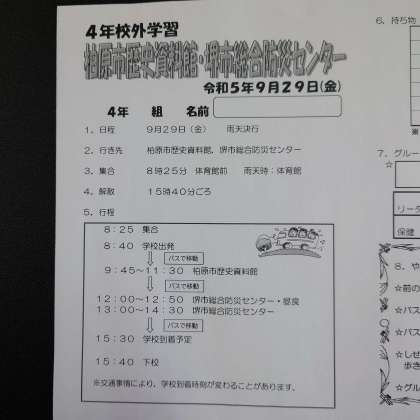 4年校外学習
柏原市歴史資料館・堺市総合防災センター
令和5年9月29日(金)
4年　組　名前
1，日程　9月29日（金）　雨天決行
2，行き先　柏原市歴史資料館，堺市総合防災センター
3，集合　8時25分　体育館前　雨天時：体育館
4，解散　15時40分ごろ
5，行程
8：25　集合
8：40　学校出発
バスで移動
9：45～11：30　柏原市歴史資料館
バスで移動
12：00～12：50　堺市総合防災センター・昼食
13：00～14：30　堺市総合防災センター
バスで移動
15：30　学校到着予定
15：40　下校
※交通事情により，学校到着時刻が変わることがあります。
6，持ち物
※
7，グルー
☆
リータ
保健
8，や
☆前の
☆バス
☆バス
☆しせ
歩き
☆グル